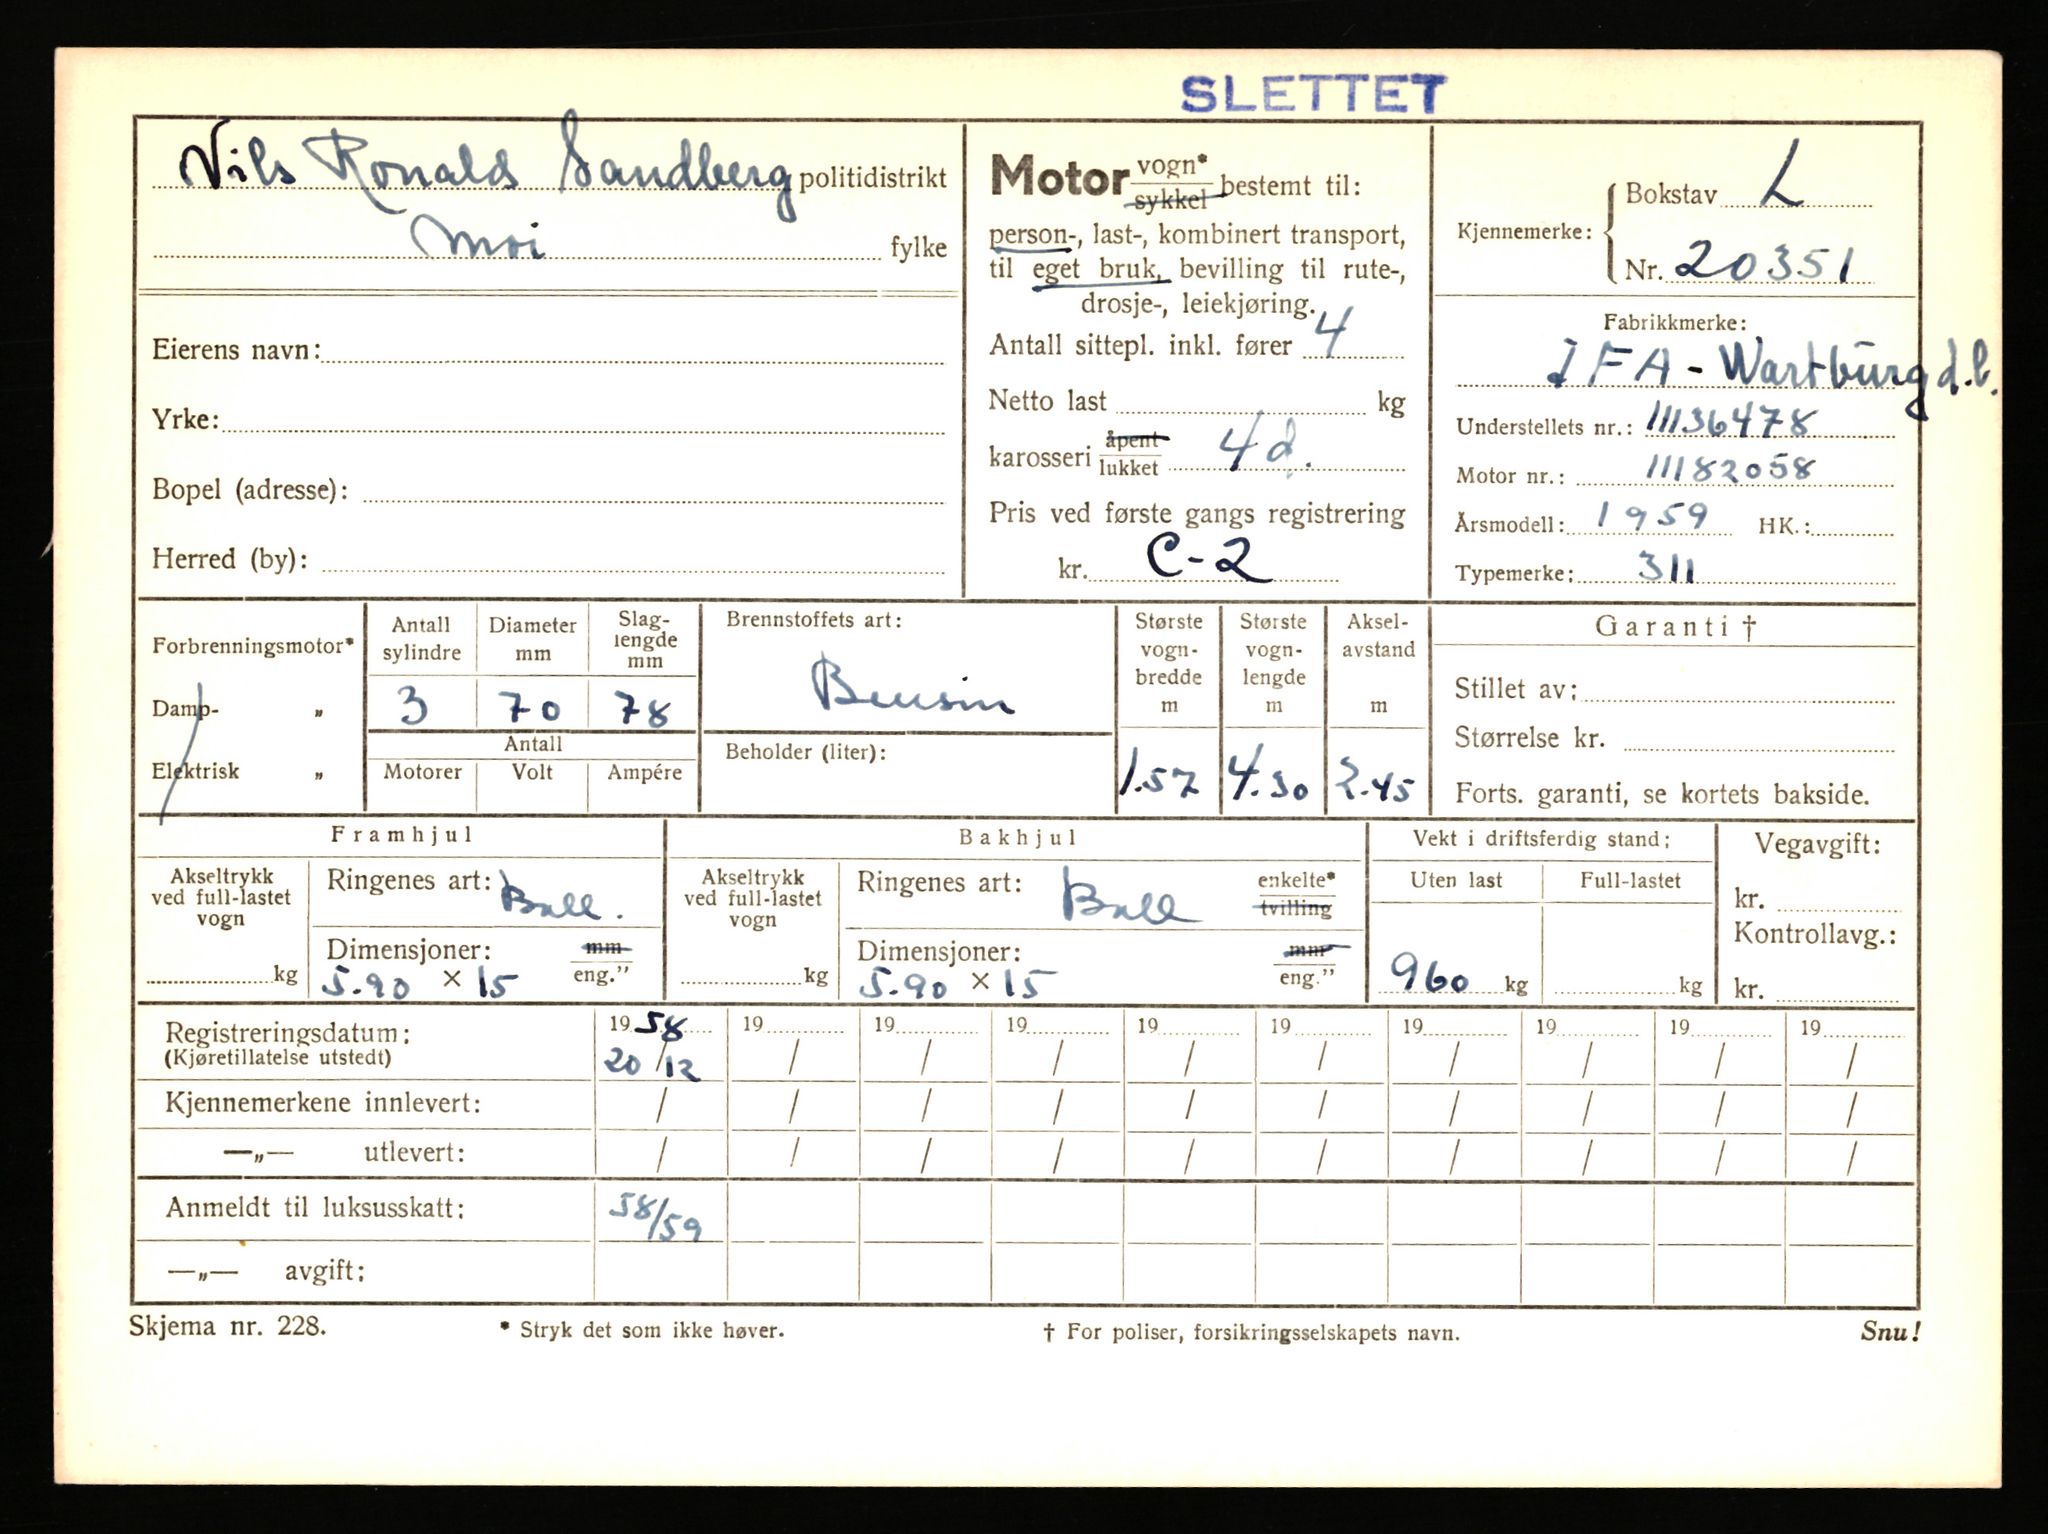 SLETTET
Nils Ronald Sandberg politidistrikt
Moi fylke
Eierens navn:
Yrke:
Bopel (adresse):
Herred (by):
Motor vogn* sykkel bestemt til:
person-, last-, kombinert transport,
til eget bruk, bevilling til rute-,
drosje-, leiekjøring.
Antall sittepl. inkl. fører 4
Netto last kg
karosseri åpent lukket 4 d.
Pris ved første gangs registrering
kr. C-2
Kjennemerke: Bokstav L
Nr. 20351
Fabrikkmerke:
IFA - Wartburg d.l.
Understellets nr.: 11136478
Motor nr.: 11182058
Årsmodell: 1959 HK.:
Typemerke: 311
Forbrenningsmotor*
Damp- „
Elektrisk „
Antall sylindre
Diameter mm
Slag-lengde mm
3 70 78
Antall
Motorer Volt Ampére
Brennstoffets art:
Bensin
Beholder (liter):
Største vogn-bredde m
1.57
Største vogn-lengde m
4.30
Aksel-avstand m
2.45
Garanti †
Stillet av:
Størrelse kr.
Forts. garanti, se kortets bakside.
Framhjul
Akseltrykk ved full-lastet vogn
kg
Ringenes art: Ball.
Dimensjoner: mm eng."
5.90 × 15
Bakhjul
Akseltrykk ved full-lastet vogn
kg
Ringenes art: Ball enkelte* tvilling
Dimensjoner: mm eng."
5.90 × 15
Vekt i driftsferdig stand:
Uten last Full-lastet
960 kg kg
Vegavgift:
kr.
Kontrollavg.:
kr.
Registreringsdatum: 1958 19 19 19 19 19 19 19 19 19
(Kjøretillatelse utstedt) 20/12 / / / / / / / / /
Kjennemerkene innlevert: / / / / / / / / / /
—„— utlevert: / / / / / / / / / /
Anmeldt til luksusskatt: 58/59
—„— avgift:
Skjema nr. 228. * Stryk det som ikke høver. † For poliser, forsikringsselskapets navn. Snu!